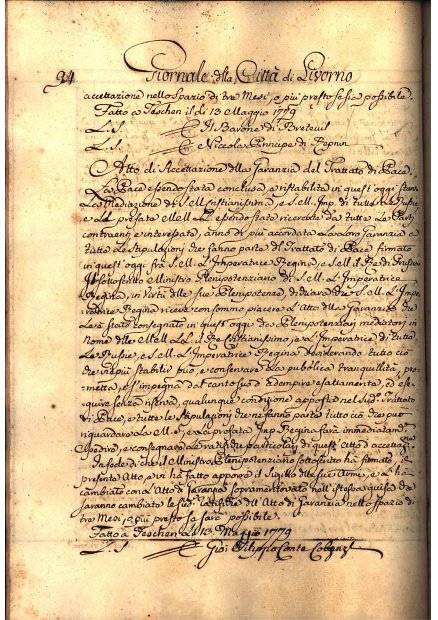 94 Giornale della Città di Livorno
accettazione nello Spazio di tre Mesi, o più presto se sia possibile.
Fatto a Teschen il di 13 Maggio 1779
L. S. Il Barone di Breteuil
L. S. Niccola Principe di Repnin
Atto di Accettazione della Garanzia del Trattato di Pace.
La Pace essendo stata conclusa, e ristabilita in questi oggi
La Mediazione di S. M. Cristianissima, e S. M. Imp. di tutte le Russie
e le prefate M. M. L. L. essendo state ricercate da tutte le Parti
contraenti, e interessate, anno di più accordata la Loro Garanzia a
tutte le Stipulazioni che fanno parte del Trattato di Pace firmato
in quest'oggi fra S. M. L'Imperatrice Regina, e S. M. il Re di Prussia
Il sottoscritto Ministro Plenipotenziario di S. M. L'Imperatrice
Regina, in virtù delle sue Plenipotenze, dichiara che S. M. L'Imp
ratrice Regina riceve con sommo piacere L'Atto della Garanzia che
Le è stato consegnato in quest'oggi da Plenipotenziarj mediatori in
Nome delle M. M. L. L. il Re Cristianissimo, e L'Imperatrice di tutte
Le Russie, e S. M. L'Imperatrice Regina desiderando tutto ciò
che più stabilir può, e conservare La pubblica tranquilità, pro-
metta, e s'impegna dal canto suo d'adempire esattamente, ed ese-
guire senza riserva, qualunque condizione apposta nel Sud. Trattato
di Pace, e tutte le Stipulazioni che ne fanno parte tutto ciò che può
riguardare La M. S., e La prefata Imp. Regina farà immediatam.
spedire, e consegnare Le ratifiche particolari di quest'Atto d'accettaz.
In fede di che il Ministro Plenipotenziario sottoscritto ha firmato il
presente Atto, e vi ha fatto apporre il Sigillo delle sue Armi, e L'à
cambiato con L'Atto di Garanzia sopramentovato nell'istessa guisa che
saranno cambiate le sud. ratifiche dell'Atto di Garanzia nello spazio di
tre Mesi, o più presto se sarà possibile.
Fatto a Teschen Li 13 Maggio 1779
L. S. Gio: Filippo Conte Cobenzl